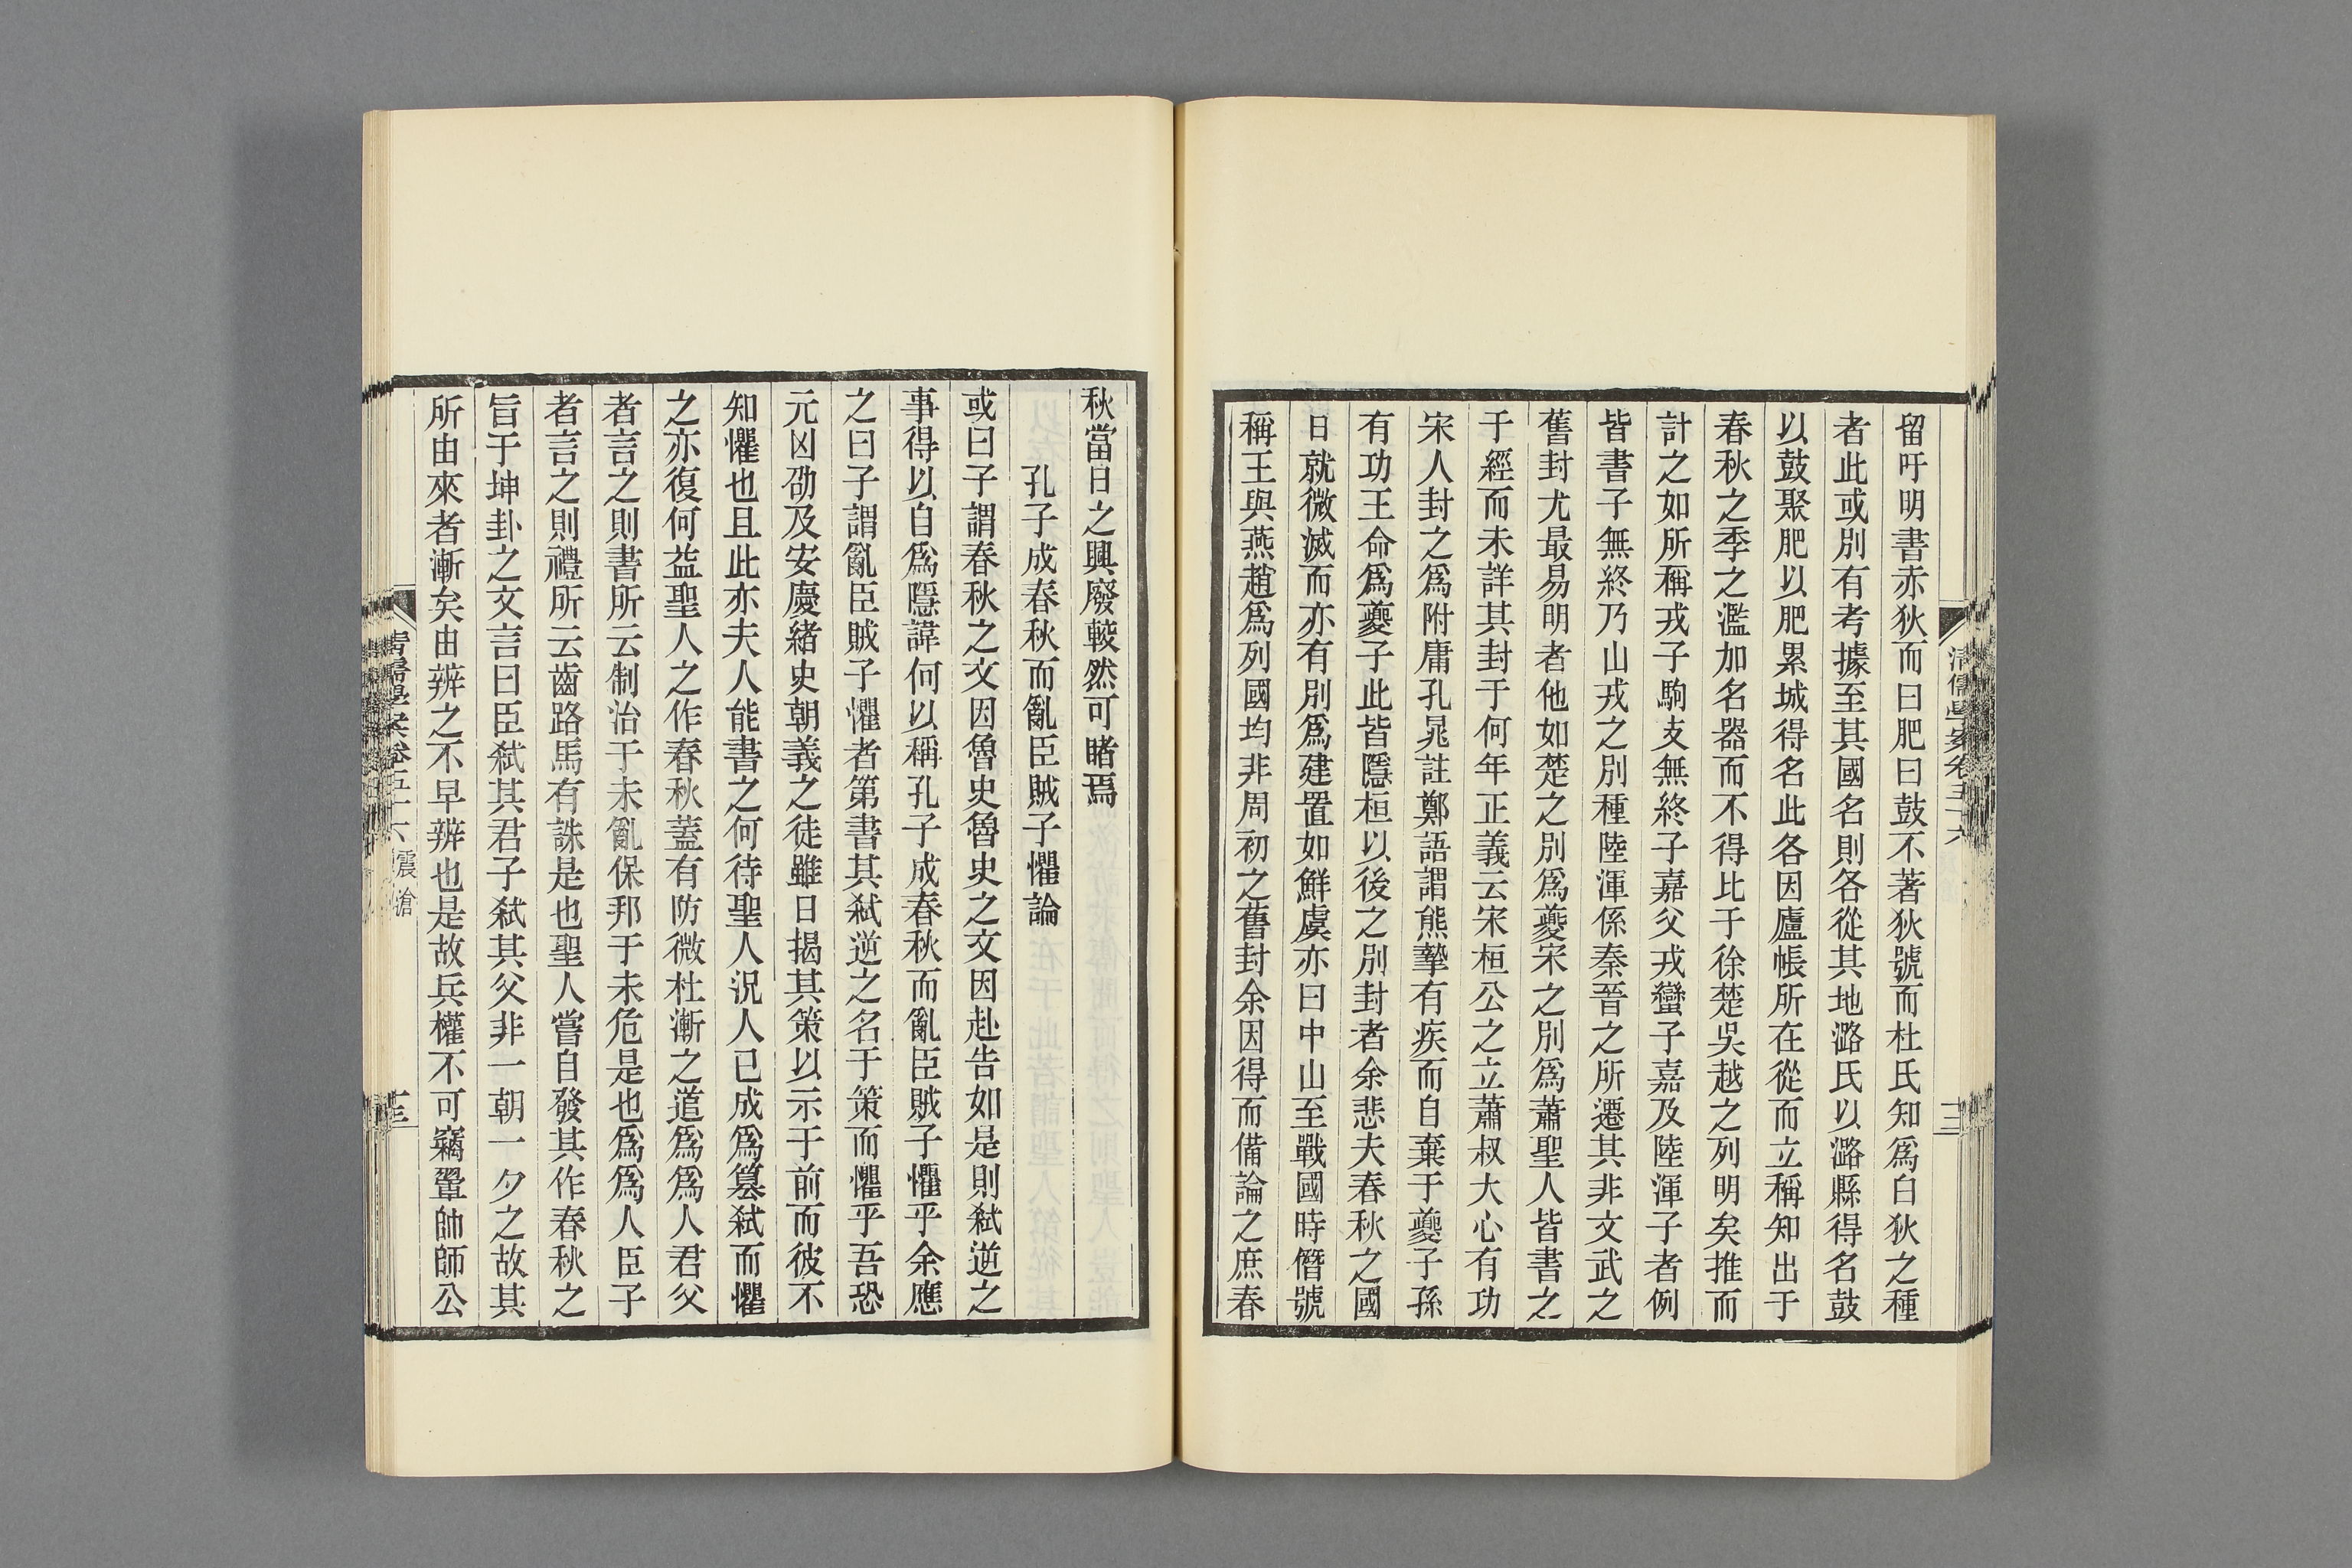 留吁明書赤狄而曰肥曰鼓不著狄號而杜氏知爲白狄之種
者此或別有考據至其國名則各從其地潞氏以潞縣得名鼓
以鼓聚肥以肥累城得名此各因廬帳所在從而立稱知出于
春秋之季之濫加名器而不得比于徐楚吳越之列明矣推而
計之如所稱戎子駒支無終子嘉父戎蠻子嘉及陸渾子者例
皆書子無終乃山戎之別種陸渾係秦晉之所遷其非文武之
舊封尤最易明者他如楚之別爲夔宋之別爲蕭聖人皆書之
于經而未詳其封于何年正義云宋桓公之立蕭叔大心有功
宋人封之爲附庸孔晁註鄭語謂熊摯有疾而自棄于夔子孫
有功王命爲夔子此皆隱桓以後之別封者余悲夫春秋之國
日就微滅而亦有別爲建置如鮮虞亦曰中山至戰國時僭號
稱王與燕趙爲列國均非周初之舊封余因得而備論之庶春
秋當日之興廢較然可睹焉
孔子成春秋而亂臣賊子懼論
或曰子謂春秋之文因魯史魯史之文因赴告如是則弑逆之
事得以自爲隱諱何以稱孔子成春秋而亂臣賊子懼乎余應
之曰子謂亂臣賊子懼者第書其弑逆之名于策而懼乎吾恐
元凶劭及安慶緒史朝義之徒雖日揭其策以示于前而彼不
知懼也且此亦夫人能書之何待聖人況人已成爲篡弑而懼
之亦復何益聖人之作春秋蓋有防微杜漸之道爲爲人君父
者言之則書所云制治于未亂保邦于未危是也爲爲人臣子
者言之則禮所云齒路馬有誅是也聖人嘗自發其作春秋之
旨于坤卦之文言曰臣弑其君子弑其父非一朝一夕之故其
所由來者漸矣由辨之不早辨也是故兵權不可竊翬帥師公
清儒學案卷五十六
清儒學案卷五十六 震滄